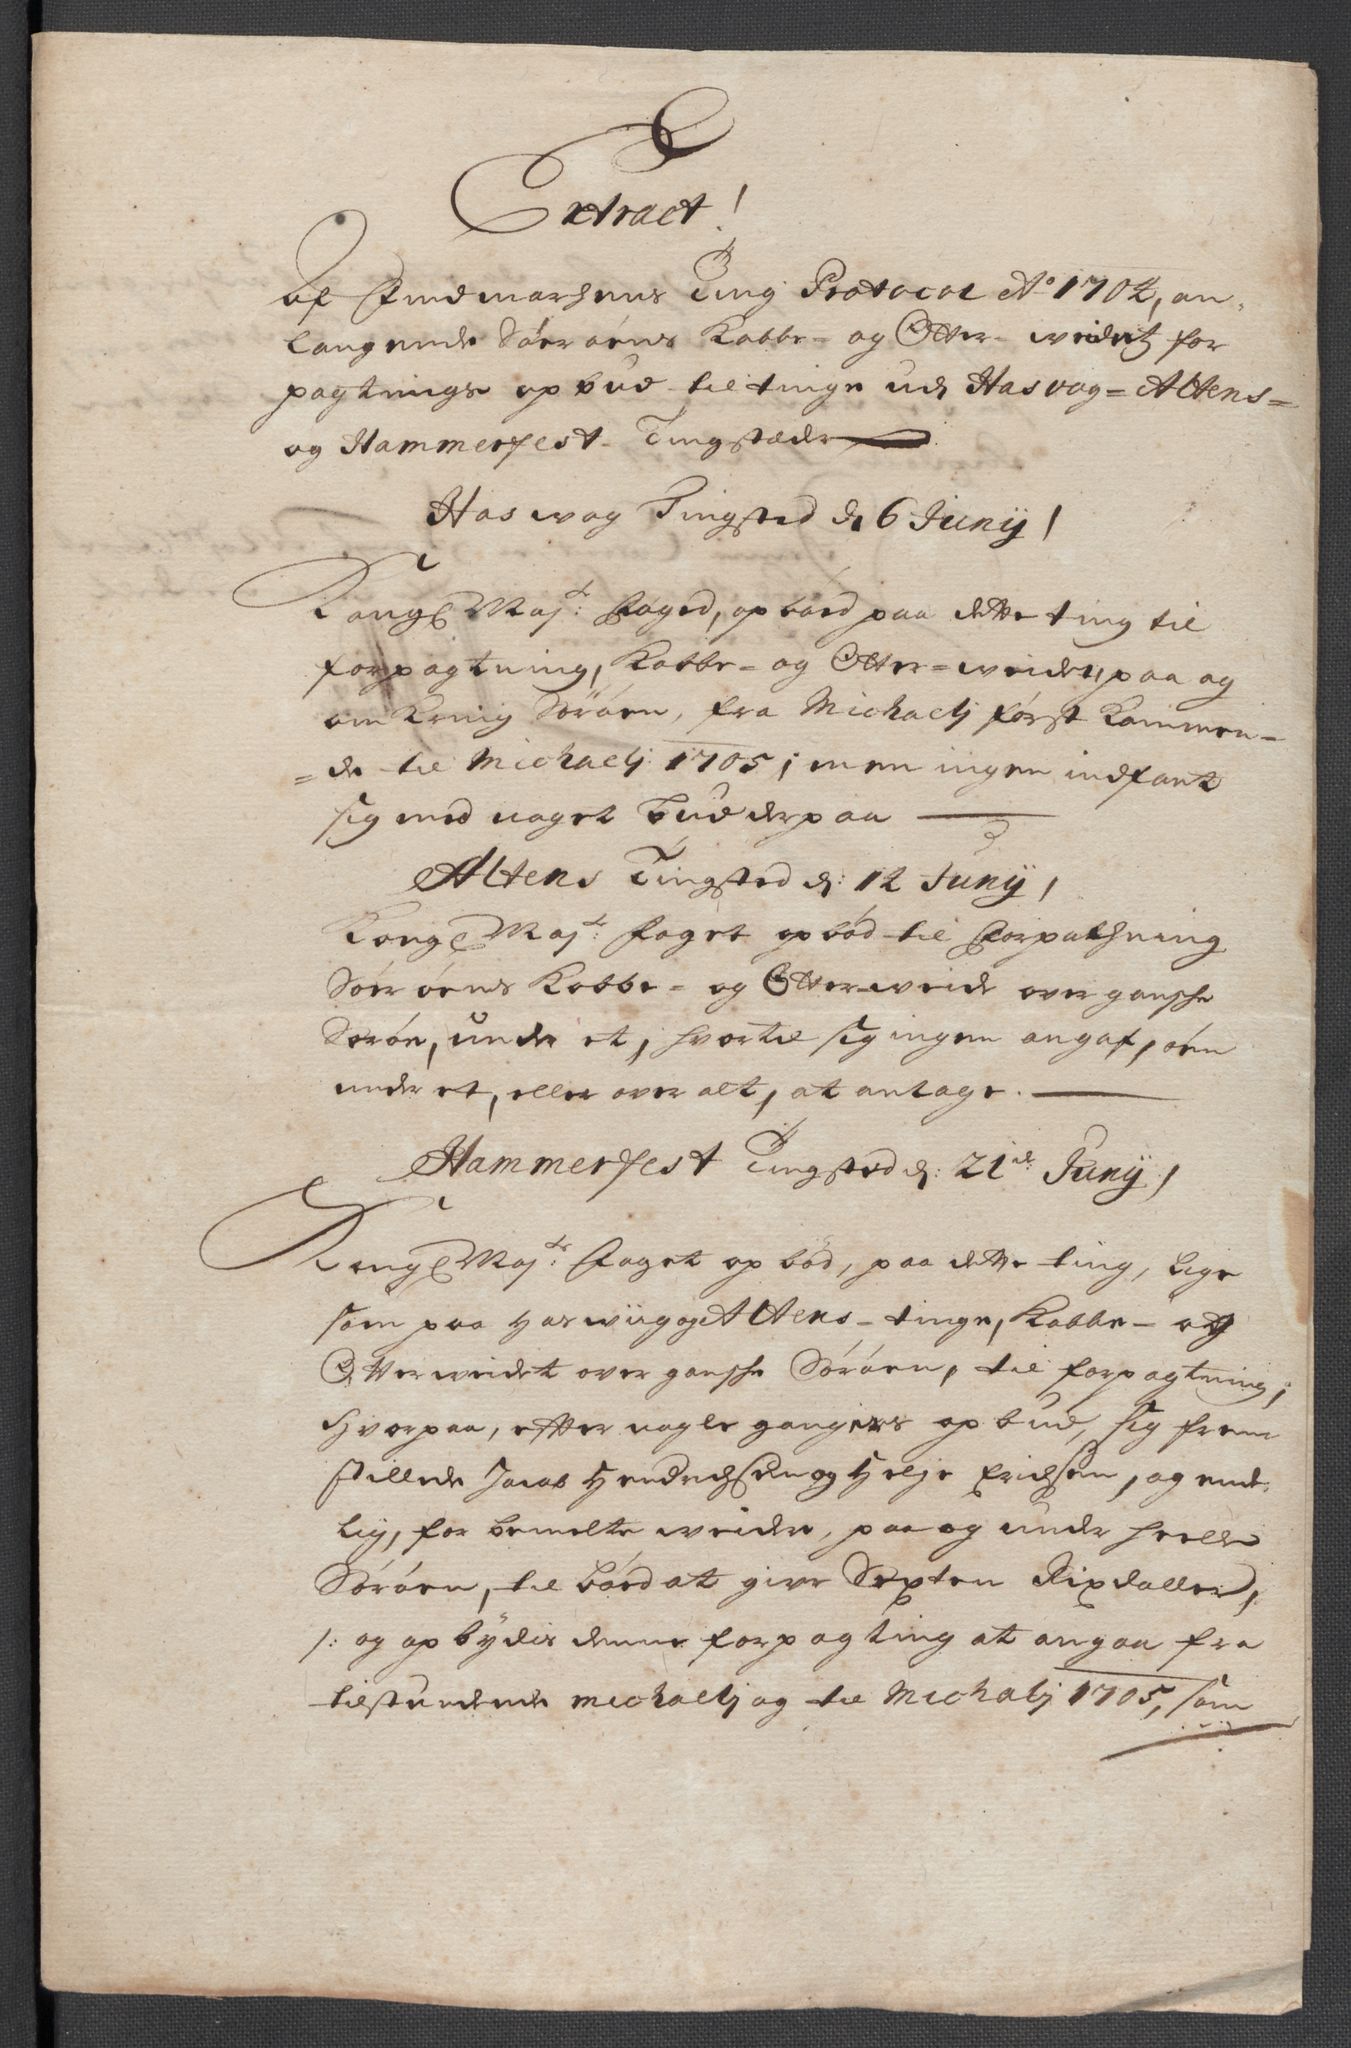 Extract!
Af Findmarchens Ting Protocol A° 1702, an-
langende Söeröens Kobbe- og Otter- weidetz for
pagtnings opbud til tinge udj Hasvog= Altens=
og Hammerfest- Tingstæder
Haswog Tingsted d: 6 Junij!
Kongl Maj:ts Foged, opböed paa dette ting til
forpagtning, Kobbe- og Otter-weiden, paa og
omkring Söröen, fra Michaelj först kommen-
=de til Michaelj 1705; men ingen indfant
sig med noget bud derpaa
Altens Tingsted d: 12 Junij!
Kongl Maj:ts foget opböd til Forpachning
Söeröens Kobbe- og Otter-weide over gansche
Soröe, under et, hvortil sig ingen angaf, öen
under et, eller over alt, at antage.
Hammerfest Tingsted d: 21de Junij!
Kongl Maj:ts Foget opböd, paa dette ting, lige
som paa Haswiig og Altens- tinge, Kobbe- og
Otterweidet over gansche Söröen, til forpagtning;
hvorpaa, effter nogle gangers opbud, sig frem
stillede Jacob Hendrichsen og Helje Erichsen, og ende-
lig, for bemelte weider, paa og under heele
Söröen, til böed at give Sexten Rixdaller,
/: og opbydis denne forpagting at angaa fra
tilstundende michaelj og til Michalj 1705, som